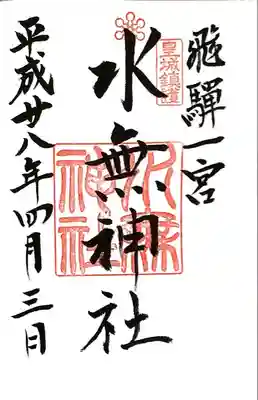 飛騨一宮
皇城鎮護
水無神社
水無神社
平成廿八年四月三日